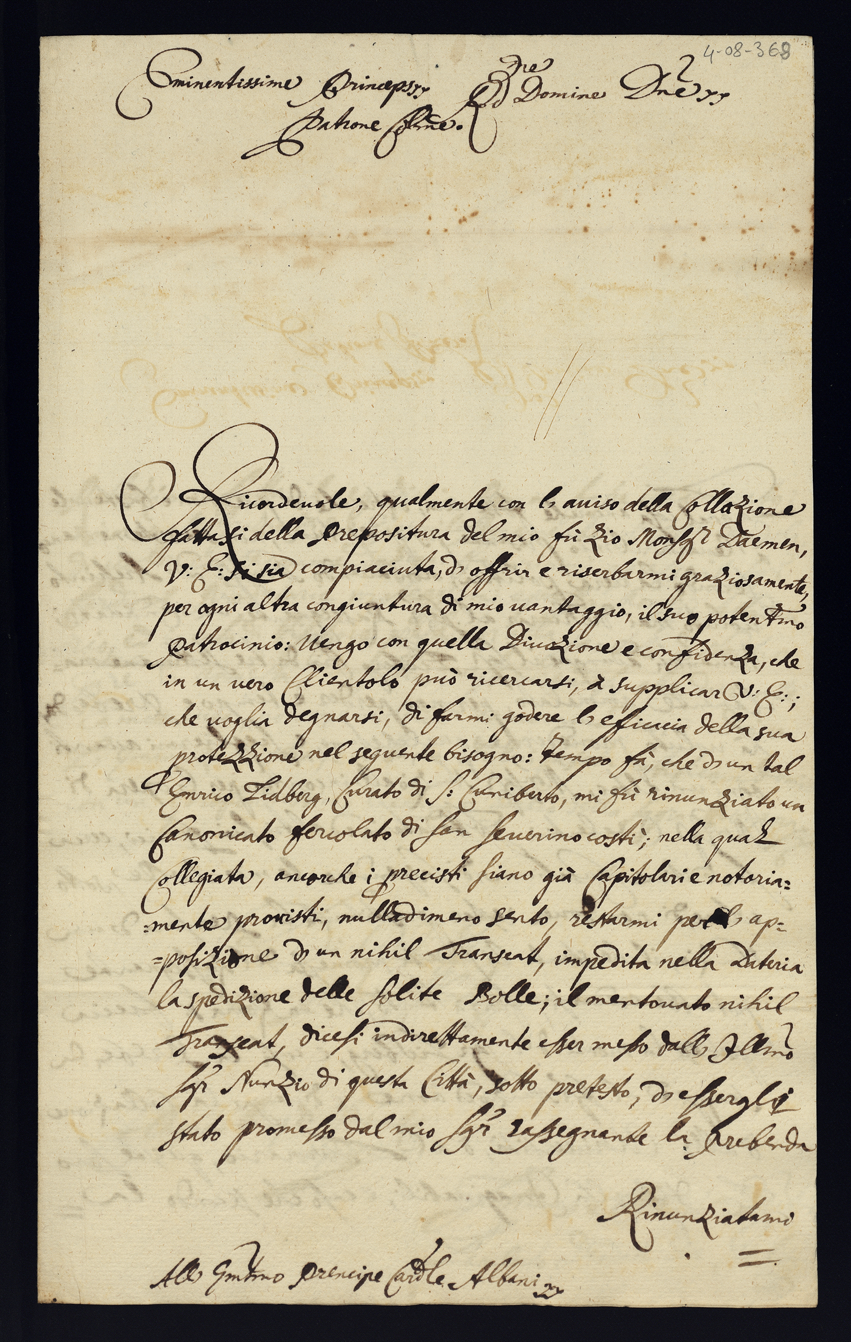 4-08-368
Eminentissime Princeps Dne
Domine Dne
Patrone Colme.
Ricordeuole, qualmente con l'auiso della Collazione
fattasi della Prepositura del mio fù Zio Monsgr Daemen,
V: E: si sia compiaciuta, d'offrir e riserbarmi graziosamente,
per ogni altra congiuntura di mio uantaggio, il suo potentmo
Patrocinio: Vengo con quella Diuozione e confidenza, che
in un vero Clientolo può ricercarsi, à supplicar V: E:;
che voglia degnarsi, di farmi godere l'efficacia della sua
protezzione nel seguente bisogno: Tempo fà, che d'un tal
Enrico Lidberg, Curato di S: Cuniberto, mi fù rinunziato un
Canonicato fercolato di San Seuerino costì; nella qual
Collegiata, ancorche i precisti siano già Capitolari e notoria=
=mente prouisti, nulladimeno sento, restarmi per l'ap=
=posizione d'un nihil Transeat, impedita nella Dateria
la spedizione delle solite Bolle; il mentouato nihil
Transeat, dicesi indirettamente esser messo dall'Illmo
Sgr Nunzio di questa Città, sotto pretesto, d'essergli
stato promesso dal mio Sgr rassegnante la Prebenda
Rinunziatami
All' Emtmo Prencipe Cardle Albani